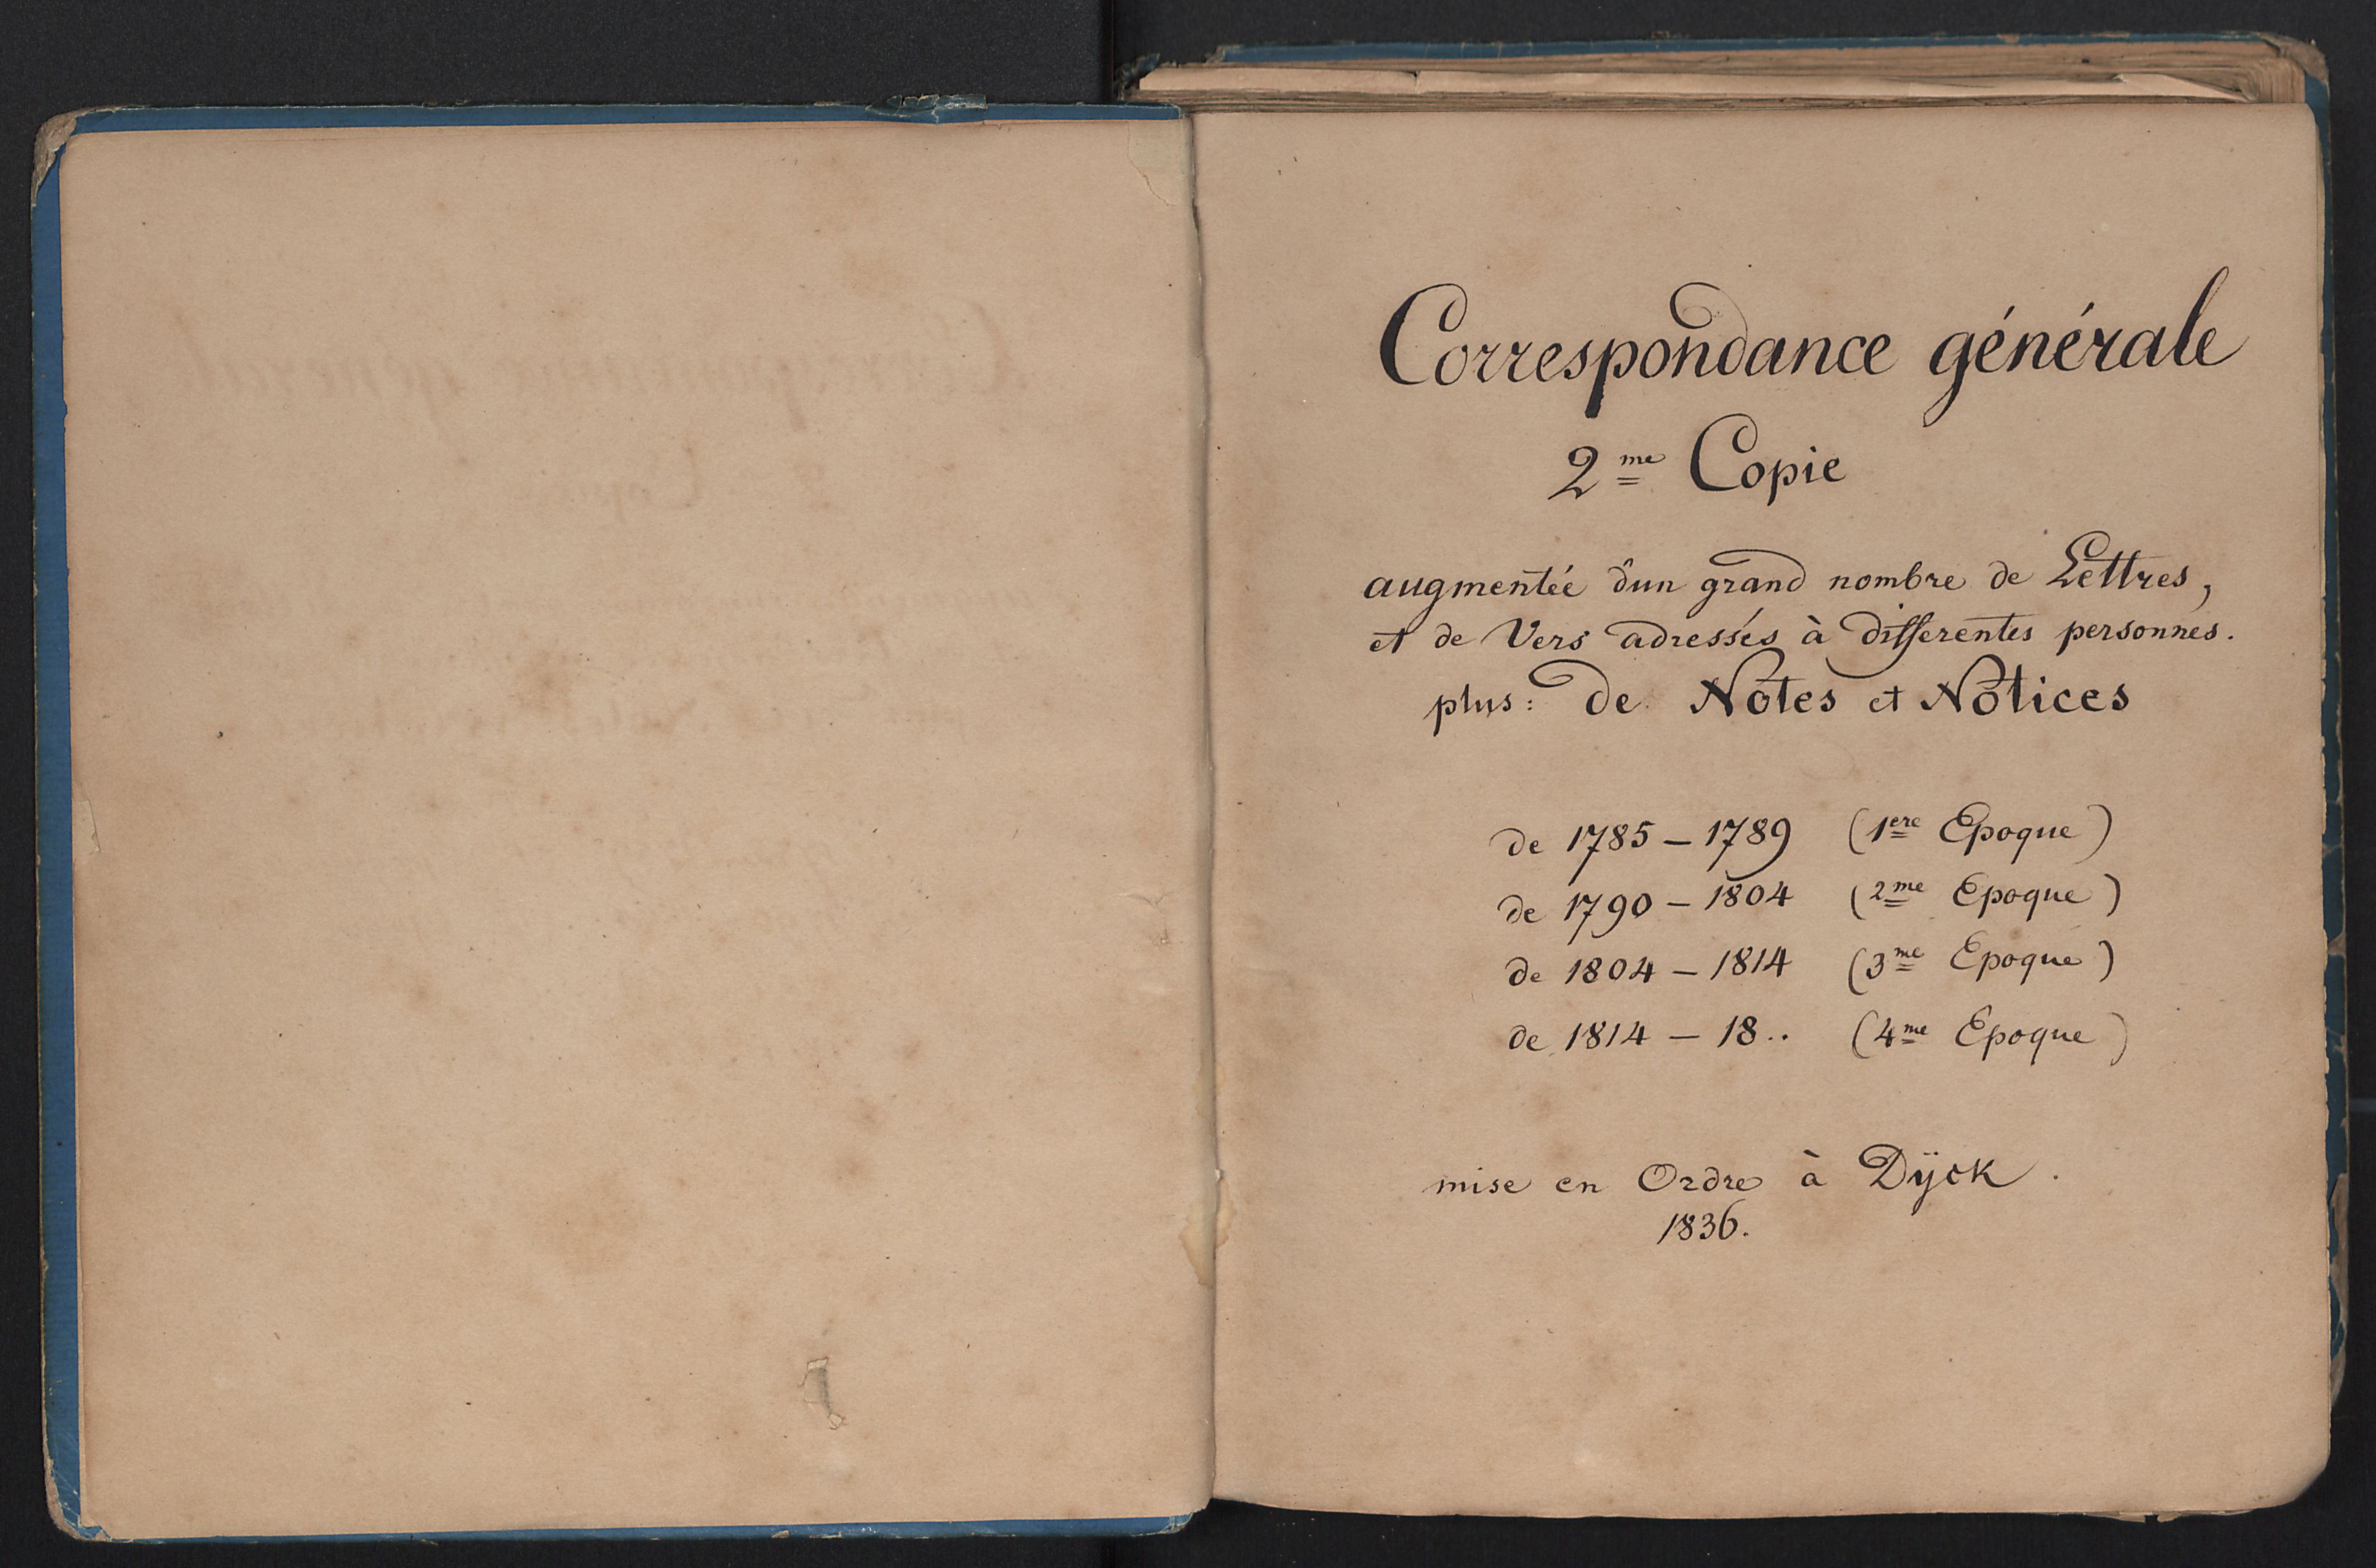 Correspondance générale
2me Copie
augmentée d'un grand nombre de Lettres,
et de Vers adressés à differentes personnes.
plus: de Notes et Notices
de 1785 – 1789 (1ere Epoque)
de 1790 – 1804 (2me Epoque)
de 1804 – 1814 (3me Epoque)
de 1814 – 18.. (4me Epoque)
mise en Ordre à Dÿck.
1836.